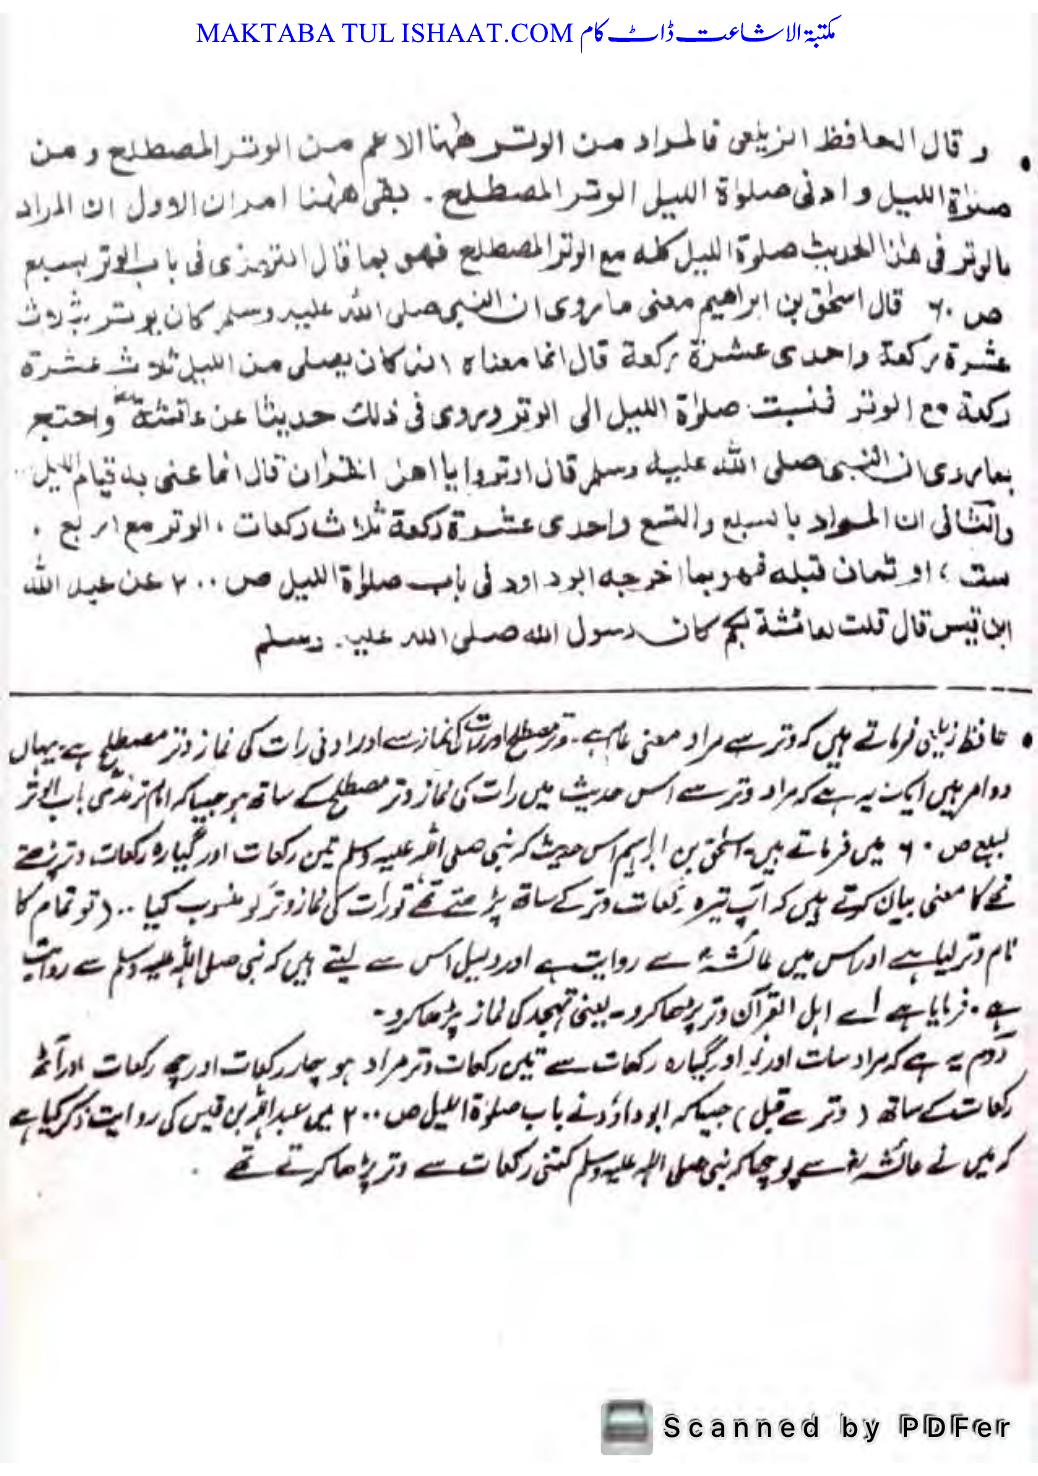 MAKTABA TUL ISHAAT.COM مکتبۃ الاشاعت ڈاٹ کام
• و قال الحافظ الزيلعى فالمراد من الوتر ههنا الاعم من الوتر المصطلح و من
صلوٰة الليل و ادنى صلوٰة الليل الوتر المصطلح ـ بقى ههنا امران الاول ان المراد
بالوتر فى هذا الحديث صلوة الليل كله مع الوتر المصطلح فهو بما قال الترمذى فى باب الوتر بسبع
ص ٦٠ قال اسحٰق بن ابراهيم معنى ما روى ان النبى صلى الله عليه وسلم كان يوتر بثلاث
عشرة ركعة واحدى عشرة ركعة قال انما معناه انه كان يصلى من الليل ثلاث عشرة
ركعة مع الوتر فنسبت صلوٰة الليل الى الوتر وروى فى ذلك حديثا عن عائشة واحتج
بما روى ان النبى صلى الله عليه وسلم قال اوتروا يا اهل القران قال انما عنى به قيام الليل
والثانى ان المراد بالسبع والتسع واحدى عشرة ركعة ثلاث ركعات ، الوتر مع اربع ،
ست ، او ثمان قبله فهو بما اخرجه ابو داود فى باب صلوٰة الليل ص ٢٠٠ عن عبد الله
ابن قيس قال قلت لعائشة بكم كان رسول الله صلى الله عليه وسلم
• حافظ زیلعی فرماتے ہیں کہ وتر سے مراد معنی عام ہے ۔ وتر مصطلح اور رات کی نماز سے اور ادنی رات کی نماز وتر مصطلح ہے یہاں
دو امر ہیں ایک یہ ہے کہ مراد وتر سے اس حدیث میں رات کی نماز وتر مصطلح کے ساتھ ہو جیسا کہ امام ترمذی باب الوتر
بسبع ص ٦٠ میں فرماتے ہیں ۔ اسحٰق بن ابراہیم اس حدیث کہ نبی صلی اللہ علیہ وسلم تین رکعات اور گیارہ رکعات وتر پڑھتے
تھے کا معنی بیان کرتے ہیں کہ آپ تیرہ رکعات وتر کے ساتھ پڑھتے تھے تو رات کی نماز وتر کو منسوب کیا .. (تو تمام کا
نام وتر لیا ہے اور اس میں عائشہؓ سے روایت ہے اور دلیل اس سے لیتے ہیں کہ نبی صلی اللہ علیہ وسلم سے روایت
ہے ۔ فرمایا ہے اے اہل القرآن وتر پڑھا کرو ۔ یعنی تہجد کی نماز پڑھا کرو ۔
دوم یہ ہے کہ مراد سات اور نو اور گیارہ رکعات سے تین رکعات وتر مراد ہو چار رکعات اور چھ رکعات اور آٹھ
رکعات کے ساتھ ( وتر سے قبل ) جیسا کہ ابو داؤد نے باب صلوٰة اللیل ص ٢٠٠ میں عبداللہ بن قیس کی روایت ذکر کیا ہے
کہ میں نے عائشہؓ سے پوچھا کہ نبی صلی اللہ علیہ وسلم کتنی رکعات سے وتر پڑھا کرتے تھے .
Scanned by PDFer